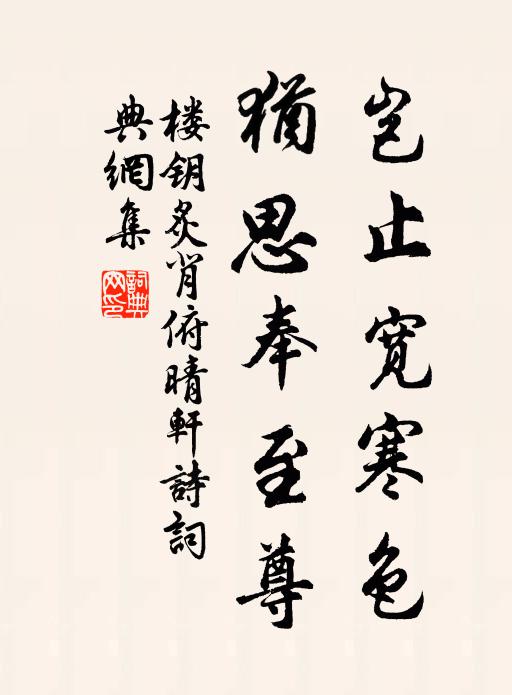 岂止宽寒色
犹思奉至尊
楼钥炙背俯晴轩诗词
典網集
詞典網印